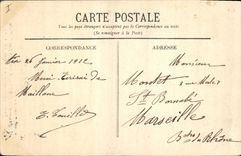 CARTE POSTALE
Tous les Pays Étrangers n'acceptent pas la Correspondance au recto
(Se renseigner à la Poste)
CORRESPONDANCE
ADRESSE
26 Janvier 1912
Merci
de
Maillane
E. Touillet
Monsieur
Moutet
St Barnabé
Marseille
Bches du Rhône